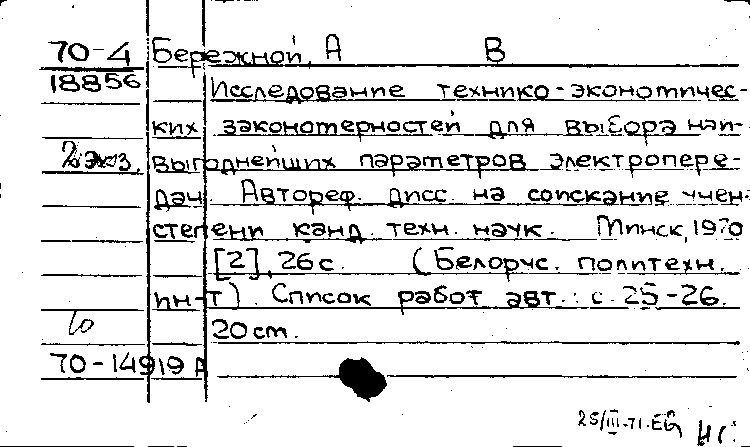 70-4 Бережной, А В
18856 Исследование технико-экономичес-
ких закономерностей для выбора наи-
2 экз. выгоднейших параметров электропере-
дач. Автореф. дисс. на соискание учен.
степени канд. техн. наук. Минск, 1970
[2], 26 с. (Белорус. политехн.
ин-т). Список работ авт.: с. 25-26.
20 cm.
70-14919 А
25/III-71.